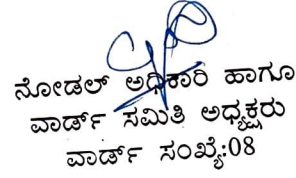 ನೋಡಲ್ ಅಧಿಕಾರಿ ಹಾಗೂ
ವಾರ್ಡ್ ಸಮಿತಿ ಅಧ್ಯಕ್ಷರು
ವಾರ್ಡ್ ಸಂಖ್ಯೆ:08